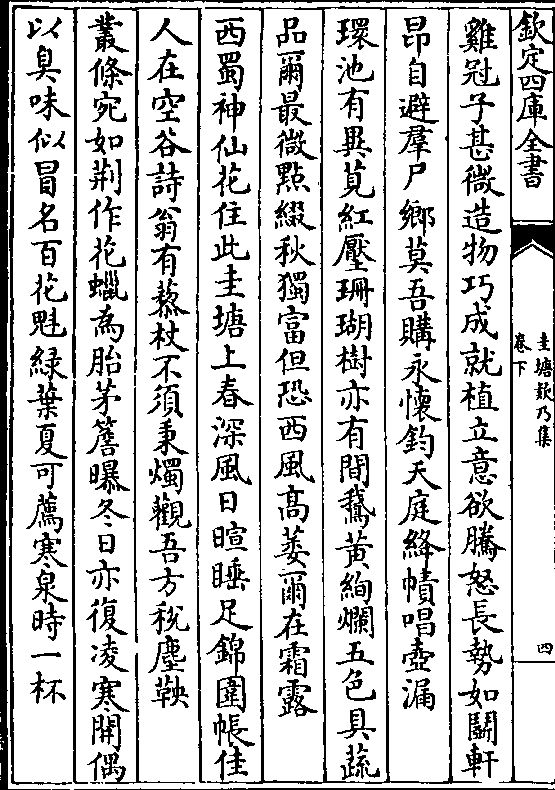 欽定四庫全書
圭塘欸乃集
卷下
四
雞冠子甚微造物巧成就植立意欲騰怒長勢如鬬軒
昂自避羣尸鄉莫吾購永懷鈞天庭絳幘唱壺漏
環池有異莧紅壓珊瑚樹亦有間鵞黄絢爛五色具蔬
品爾最微㸃綴秋獨富但恐西風髙萎爾在霜露
西蜀神仙花住此圭塘上春深風日暄睡足錦圍帳佳
人在空谷詩翁有藜杖不須秉燭觀吾方稅塵鞅
叢條宛如荆作花蠟為胎茅簷曝冬日亦復凌寒開偶
以臭味似冒名百花魁緑葉夏可薦寒泉時一杯